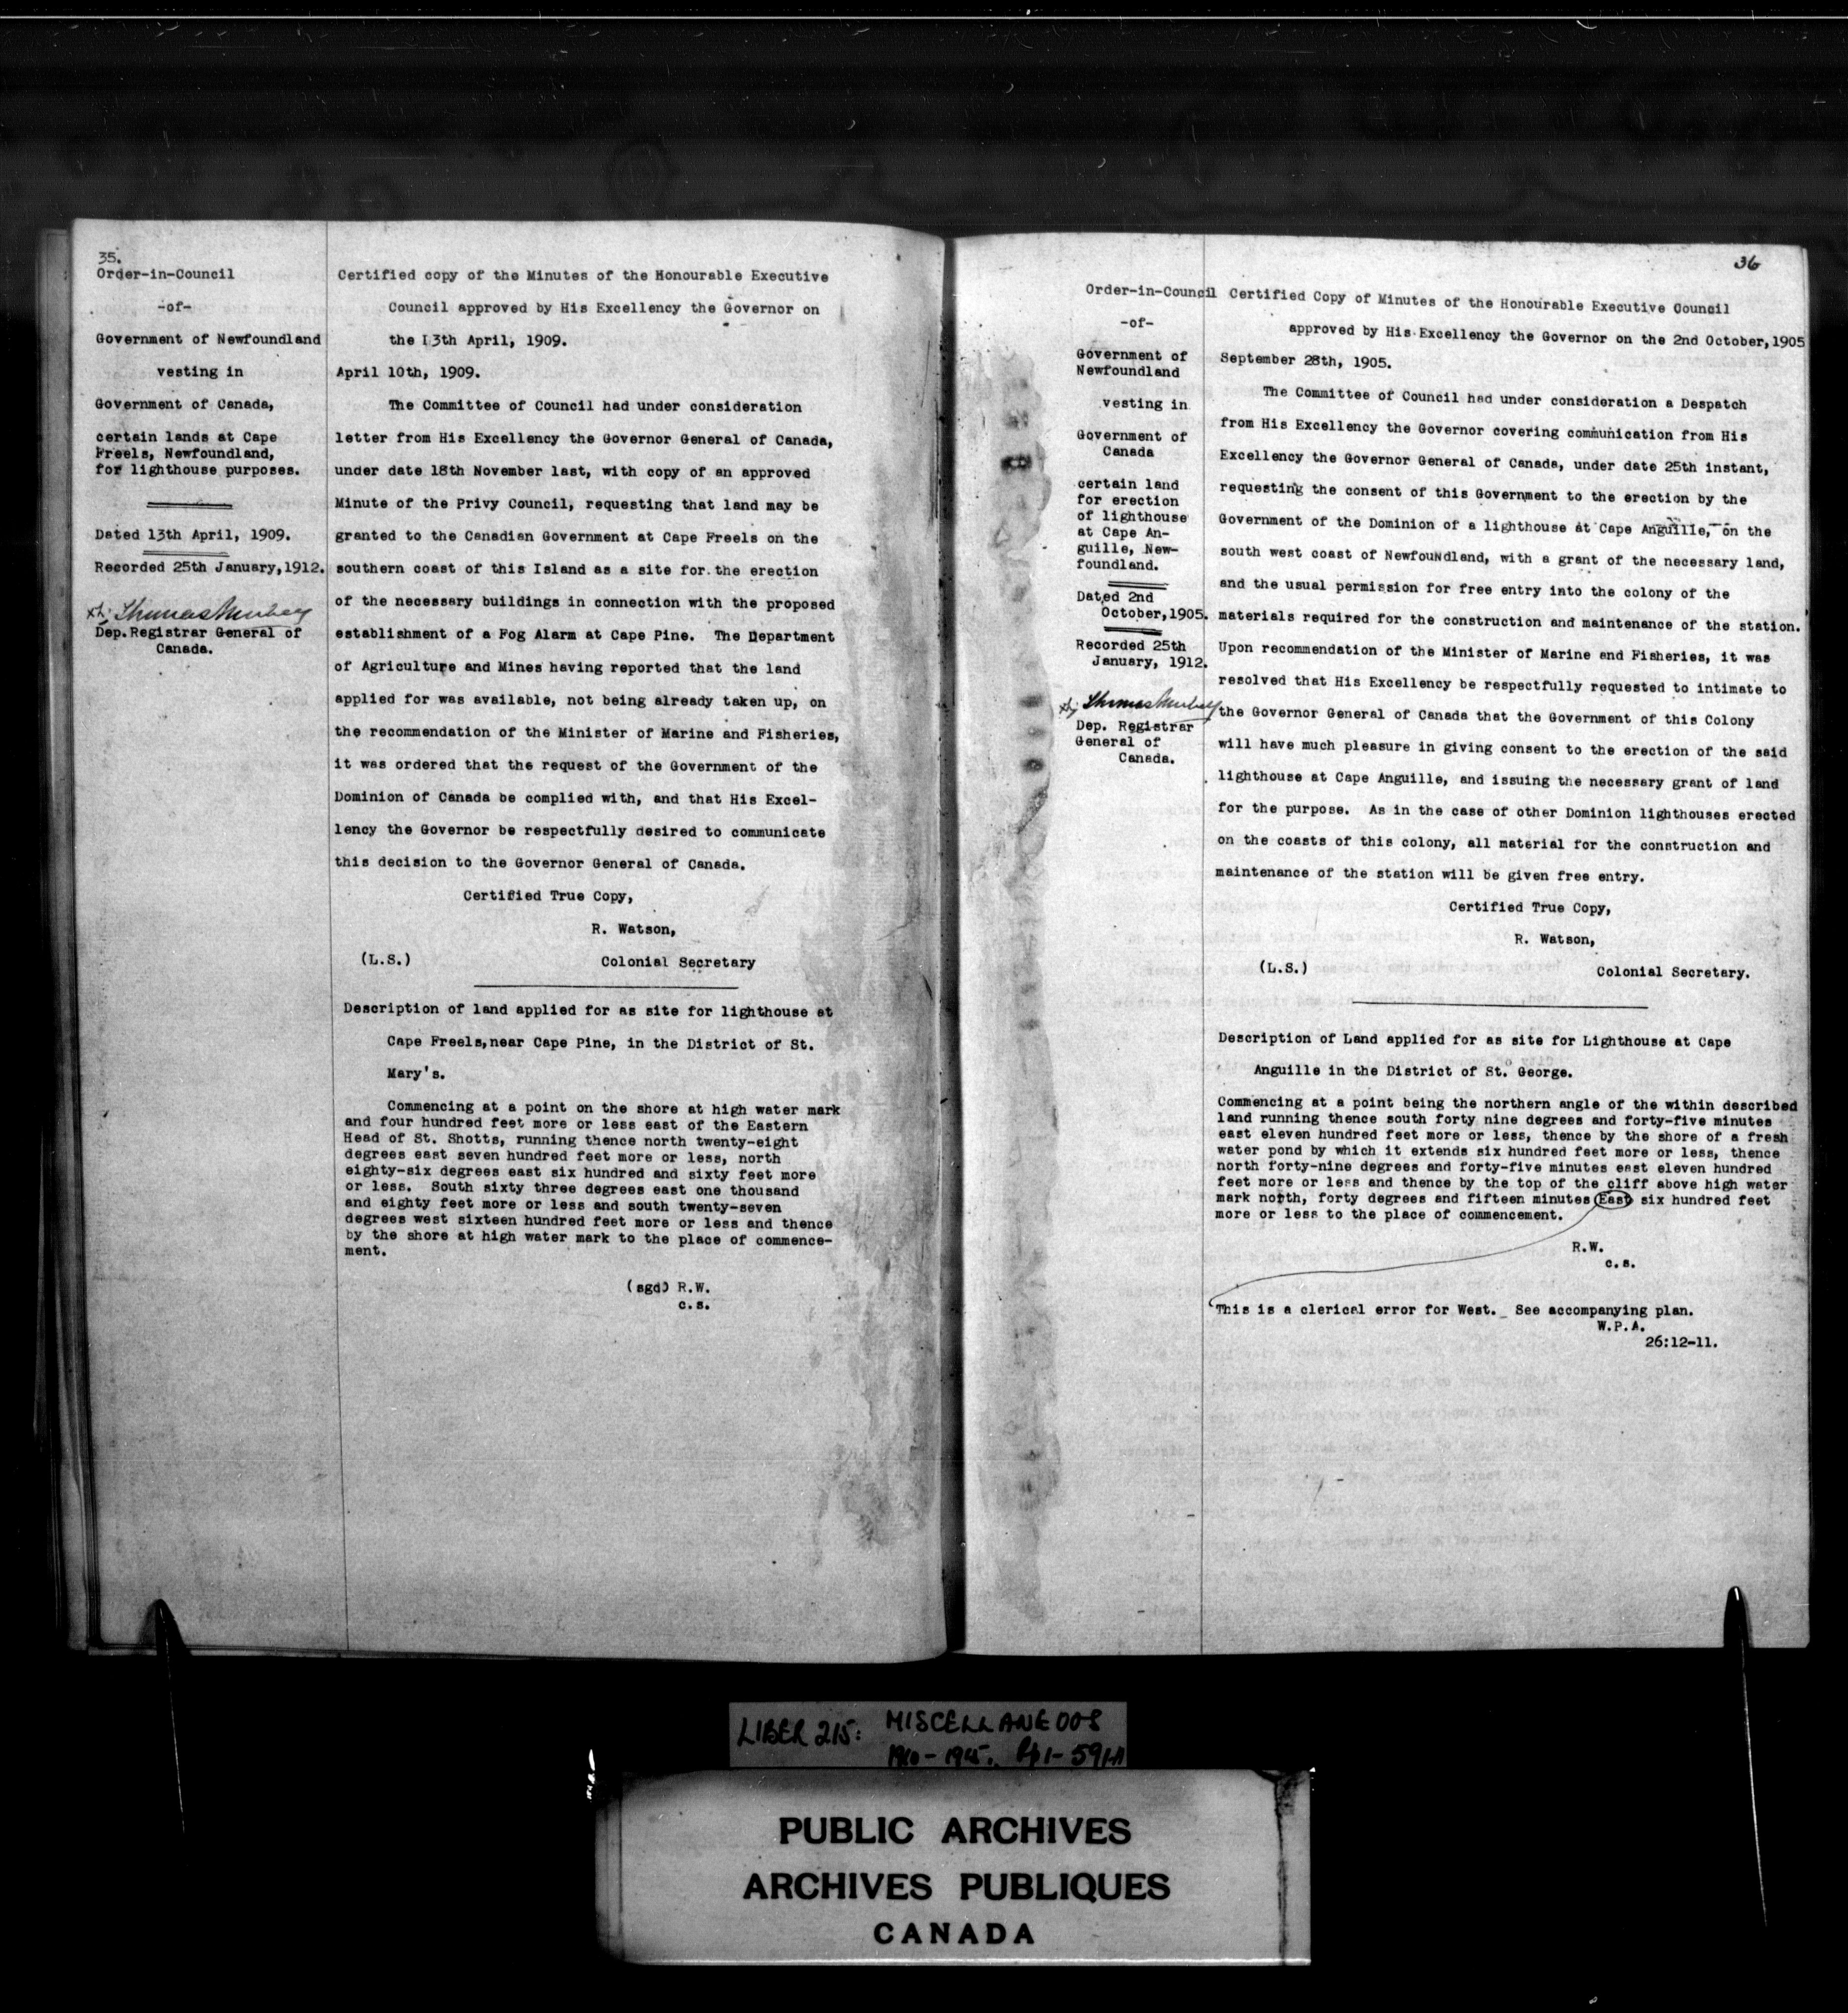 35.
Order-in-Council
-of-
Government of Newfoundland
vesting in
Government of Canada,
certain lands at Cape
Freels, Newfoundland,
for lighthouse purposes.
Dated 13th April, 1909.
Recorded 25th January,1912.
Dep.Registrar General of
Canada.
Certified copy of the Minutes of the Honourable Executive
Council approved by His Excellency the Governor on
the 13th April, 1909.
April 10th, 1909.
The Committee of Council had under consideration
letter from His Excellency the Governor General of Canada,
under date 18th November last, with copy of an approved
Minute of the Privy Council, requesting that land may be
granted to the Canadian Government at Cape Freels on the
southern coast of this Island as a site for the erection
of the necessary buildings in connection with the proposed
establishment of a Fog Alarm at Cape Pine. The Department
of Agriculture and Mines having reported that the land
applied for was available, not being already taken up, on
the recommendation of the Minister of Marine and Fisheries,
it was ordered that the request of the Government of the
Dominion of Canada be complied with, and that His Excel-
lency the Governor be respectfully desired to communicate
this decision to the Governor General of Canada.
Certified True Copy,
R. Watson,
(L.S.) Colonial Secretary
Description of land applied for as site for lighthouse at
Cape Freels,near Cape Pine, in the District of St.
Mary's.
Commencing at a point on the shore at high water mark
and four hundred feet more or less east of the Eastern
Head of St. Shotts, running thence north twenty-eight
degrees east seven hundred feet more or less, north
eighty-six degrees east six hundred and sixty feet more
or less. South sixty three degrees east one thousand
and eighty feet more or less and south twenty-seven
degrees west sixteen hundred feet more or less and thence
by the shore at high water mark to the place of commence-
ment.
(sgd) R.W.
c.s.
36
Order-in-Council
-of-
Government of
Newfoundland
vesting in
Government of
Canada
certain land
for erection
of lighthouse
at Cape An-
guille, New-
foundland.
Dated 2nd
October,1905.
Recorded 25th
January, 1912.
Dep. Registrar
General of
Canada.
Certified Copy of Minutes of the Honourable Executive Council
approved by His Excellency the Governor on the 2nd October,1905
September 28th, 1905.
The Committee of Council had under consideration a Despatch
from His Excellency the Governor covering communication from His
Excellency the Governor General of Canada, under date 25th instant,
requesting the consent of this Government to the erection by the
Government of the Dominion of a lighthouse at Cape Anguille, on the
south west coast of NewfouNdland, with a grant of the necessary land,
and the usual permission for free entry into the colony of the
materials required for the construction and maintenance of the station.
Upon recommendation of the Minister of Marine and Fisheries, it was
resolved that His Excellency be respectfully requested to intimate to
the Governor General of Canada that the Government of this Colony
will have much pleasure in giving consent to the erection of the said
lighthouse at Cape Anguille, and issuing the necessary grant of land
for the purpose. As in the case of other Dominion lighthouses erected
on the coasts of this colony, all material for the construction and
maintenance of the station will be given free entry.
Certified True Copy,
R. Watson,
(L.S.) Colonial Secretary.
Description of Land applied for as site for Lighthouse at Cape
Anguille in the District of St. George.
Commencing at a point being the northern angle of the within described
land running thence south forty nine degrees and forty-five minutes
east eleven hundred feet more or less, thence by the shore of a fresh
water pond by which it extends six hundred feet more or less, thence
north forty-nine degrees and forty-five minutes east eleven hundred
feet more or less and thence by the top of the cliff above high water
mark north, forty degrees and fifteen minutes East six hundred feet
more or less to the place of commencement.
R.W.
c.s.
This is a clerical error for West. See accompanying plan.
W.P.A.
26:12-11.
LIBER 215: MISCELLANEOUS
1910-1945. Pp 1-591
PUBLIC ARCHIVES
ARCHIVES PUBLIQUES
CANADA